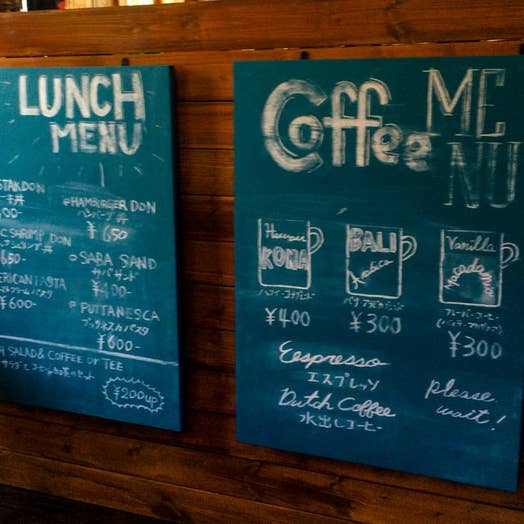 LUNCH
MENU
STAKDON
キ丼
HAMBURGER DON
ハンバーグ丼
¥650
C SHRIMP DON
650-
SABA SAND
サバサンド
¥400-
ERICAN TASTA
¥600-
PUTTANESCA
プッタネスカパスタ
¥600-
H SALAD & COFFEE or TEE
¥200up
Coffee
MENU
Hawaii
KONA
ハワイ・コナ
¥400
BALI
Arabica
バリ アラビカ
¥300
Vanilla
Macadamia
フレーバーコーヒー
(バニラマカダミア)
¥300
Eespresso
エスプレッソ
Dutch Coffee
水出しコーヒー
please
wait!